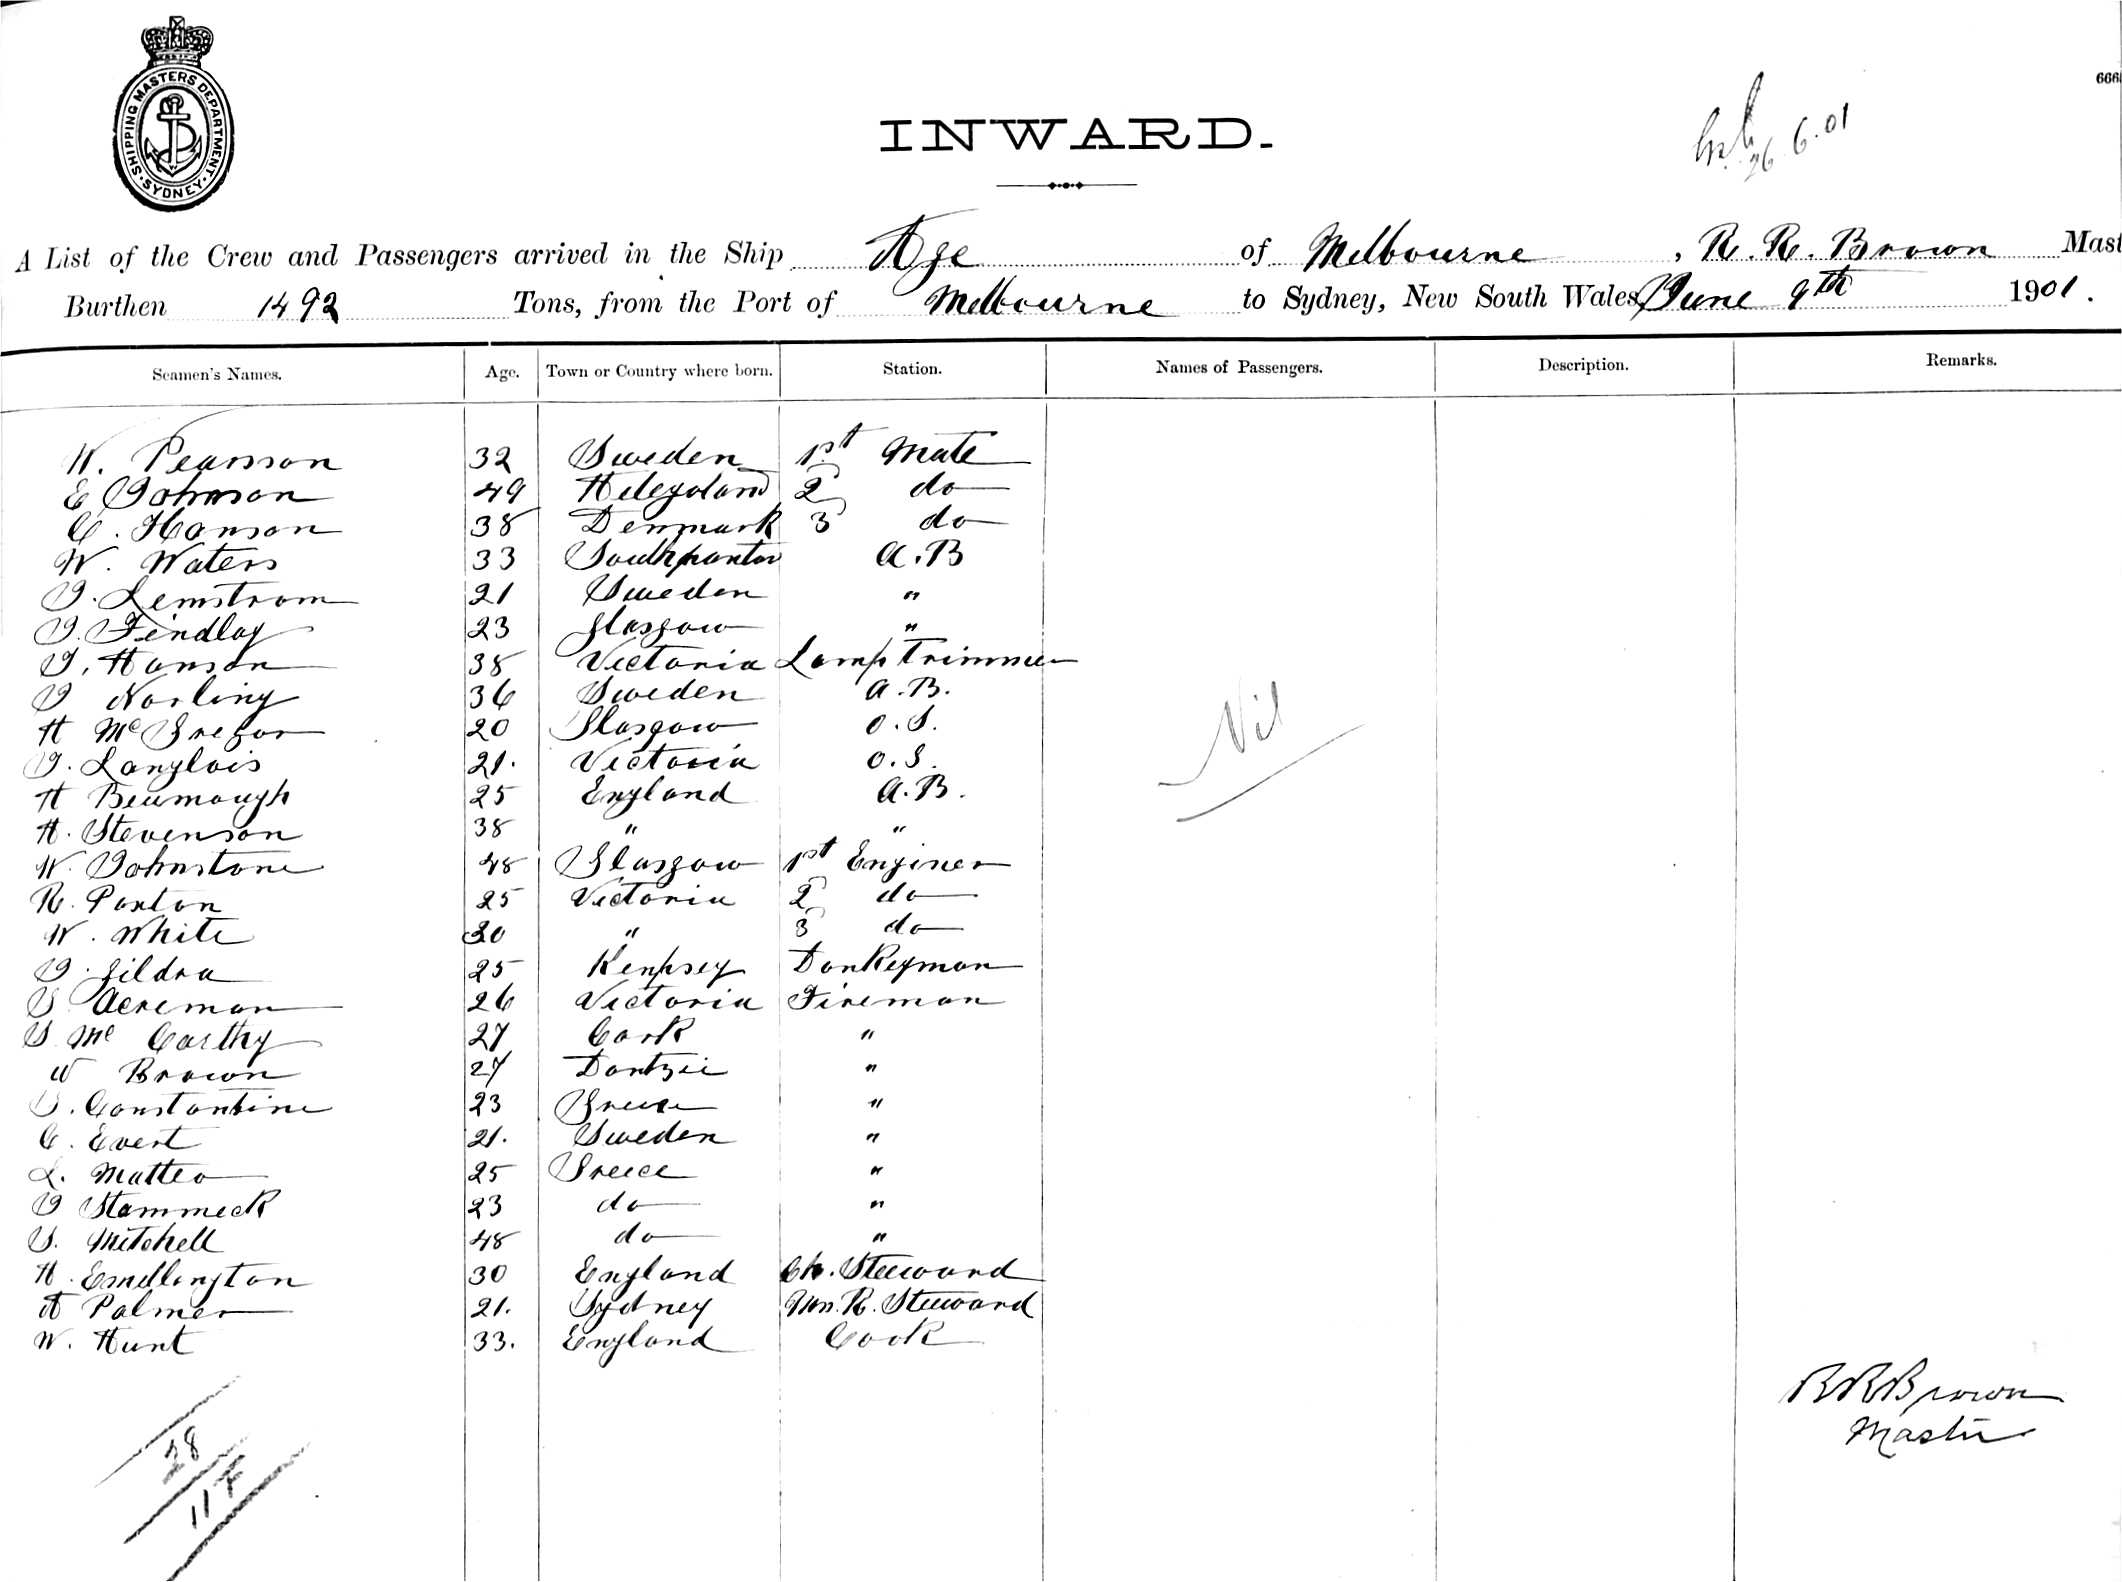 SHIPPING MASTERS DEPARTMENT. SYDNEY.
666
INWARD.
26 6.01
A List of the Crew and Passengers arrived in the Ship Age of Melbourne, R. R. Brown Mast
Burthen 1492 Tons, from the Port of Melbourne to Sydney, New South Wales, June 9th 1901.
Seamen's Names. Age. Town or Country where born. Station. Names of Passengers. Description. Remarks.
W. Pearson 32 Sweden 1st Mate
E Johnson 49 Helegoland 2 do
C. Hanson 38 Denmark 3 do
W. Waters 33 A.B
J. Lemstrom 21 Sweden "
J. Findlay 23 Glasgow "
J. Hanson 38 Victoria Lamp Trimmer
J Norling 36 Sweden A.B.
H McGregor 20 Glasgow O.S.
J. Langlois 21. Victoria O.S.
H 25 England A.B.
H. Stevenson 38 " "
W. Johnstone 48 Glasgow 1st Enginer
R. Paxton 25 Victoria 2 do
W. White 30 " 3 do
J. Gildra 25 Kempsey Donkeyman
G Acreman 26 Victoria Fireman
Mc Carthy 27 Cork "
W Brown 27 Dantzic "
G. Constantine 23 Greece "
C. Evert 21. Sweden "
L. Matteo 25 Greece "
J Stammeck 23 do "
G. Mitchell 48 do "
H. Emdlington 30 England Ch. Steeward
A Palmer 21. Sydney Steeward
W. Hunt 33. England Cook
Nil
R R Brown
Master
28
117